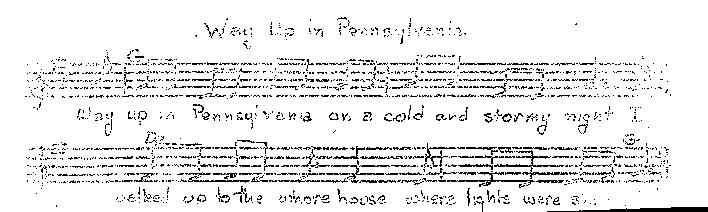 Way Up in Pennsylvania
G
Way up in Pennsylvania on a cold and stormy night I
D7 G
walked up to the whore house where lights were